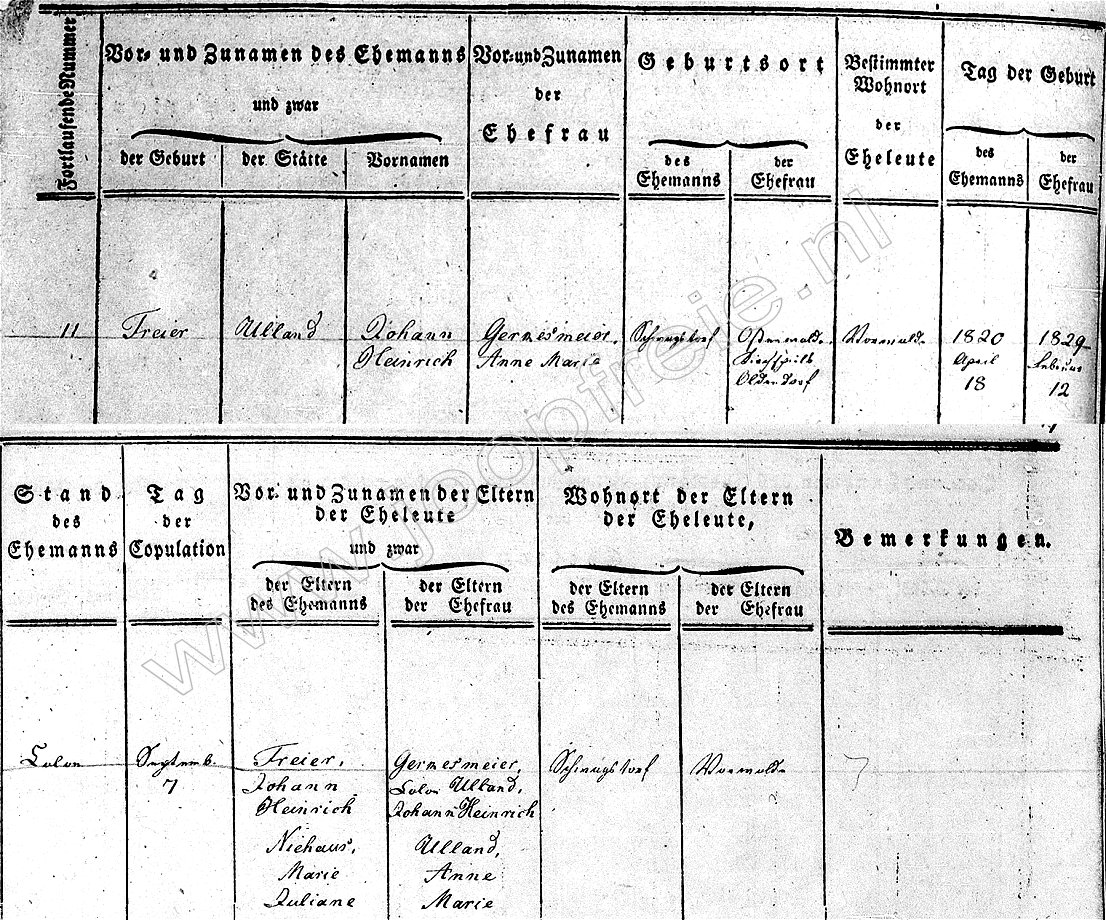 Fortlaufende Nummer
Vor- und Zunamen des Ehemanns
und zwar
der Geburt
der Stätte
Vornamen
Vor- und Zunamen
der
Ehefrau
Geburtsort
des
Ehemanns
der
Ehefrau
Bestimmter
Wohnort
der
Eheleute
Tag der Geburt
des
Ehemanns
der
Ehefrau
11
Freier
Ulland
Johann
Heinrich
Germesmeier,
Anne Marie
Schwagstorf
Ostenwalde
Kirchspils
Oldendorf
Vorwalde
1820
April
18
1829
Februar
12
Stand
des
Ehemanns
Tag
der
Copulation
Vor- und Zunamen der Eltern
der Eheleute
und zwar
der Eltern
des Ehemanns
der Eltern
der Ehefrau
Wohnort der Eltern
der Eheleute,
der Eltern
des Ehemanns
der Eltern
der Ehefrau
Bemerkungen.
Colon
Septemb.
7
Freier,
Johann
Heinrich
Niehaus,
Marie
Juliane
Germesmeier,
Colon Ulland,
Johann Heinrich
Ulland,
Anne
Marie
Schwagstorf
Vorwalde
www.joopfreije.nl